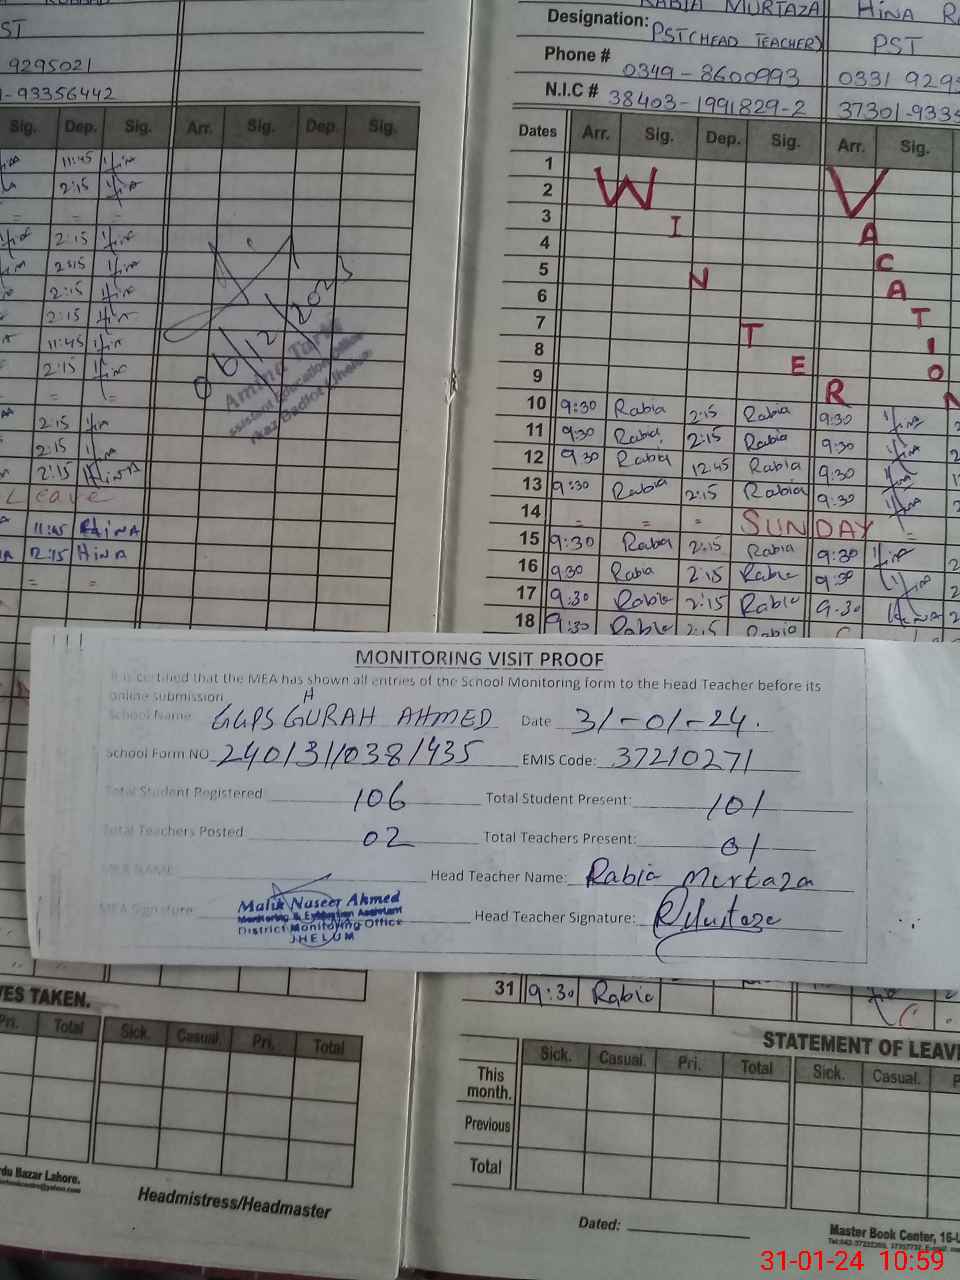 ST
9295021
-93356442
Sig. Dep. Sig. Arr. Sig. Dep. Sig.
11:45
2:15
= = =
2:15
2:15
2:15
2:15
11:45
2:15
= =
2:15
2:15
2:15 HINA
Leave
11:45 HINA
12:15 HINA
= =
06/12/2023
Amina Tariq
RABIA MURTAZA HINA
Designation: PST(HEAD TEACHER) PST
Phone # 0349-8600993 0331 929
N.I.C # 38403-1991829-2 37301-933
Dates Arr. Sig. Dep. Sig. Arr. Sig.
1
2
3
4
5
6
7
8
9
WINTER VACATION
10 9:30 Rabia 2:15 Rabia 9:30
11 9:30 Rabia 2:15 Rabia 9:30
12 9:30 Rabia 12:45 Rabia 9:30
13 9:30 Rabia 2:15 Rabia 9:30
14 = = = SUNDAY =
15 9:30 Rabia 2:15 Rabia 9:30
16 930 Rabia 2:15 Rabia 9:30
17 9:30 Rabia 2:15 Rabia 9:30 HINA
18 9:30 Rabia 2:15 Rabia
MONITORING VISIT PROOF
It is certified that the MEA has shown all entries of the School Monitoring form to the Head Teacher before its
online submission
School Name GGPS GHURAH AHMED Date 31-01-24.
School Form NO 240131/038/435 EMIS Code: 37210271
Total Student Registered 106 Total Student Present: 101
Total Teachers Posted 02 Total Teachers Present: 01
MEA NAME: Head Teacher Name: Rabia Murtaza
MEA Signature: Head Teacher Signature: RMurtaza
Malik Naseer Ahmed
Monitoring & Evaluation Assistant
District Monitoring Office
JHELUM
31 9:30 Rabia
VES TAKEN.
Pri. Total Sick. Casual. Pri. Total
rdu Bazar Lahore.
Headmistress/Headmaster
STATEMENT OF LEAV
Sick. Casual. Pri. Total Sick. Casual. P
This month.
Previous
Total
Dated:
Master Book Center, 16-U
31-01-24 10:59